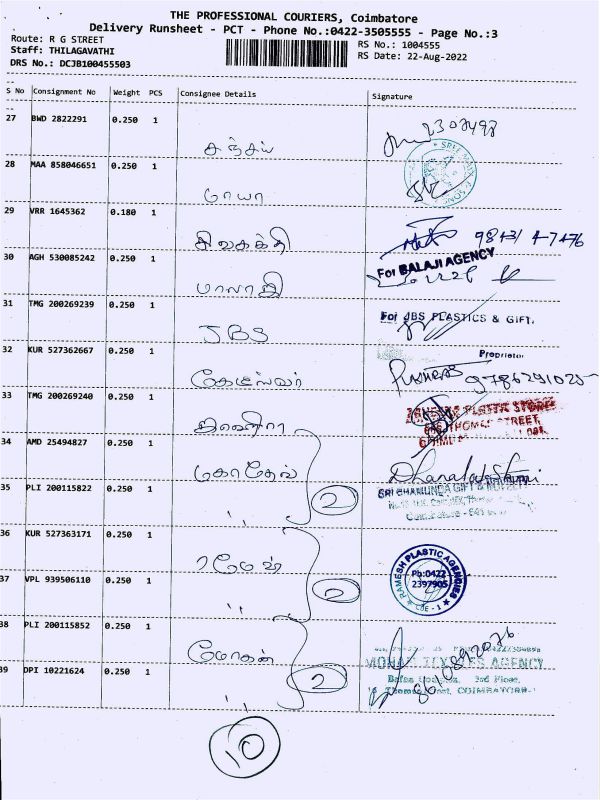 THE PROFESSIONAL COURIERS, Coimbatore
Delivery Runsheet - PCT - Phone No.:0422-3505555 - Page No.:3
Route: R G STREET
Staff: THILAGAVATHI
DRS No.: DCJB100455503
RS No.: 1004555
RS Date: 22-Aug-2022
S No Consignment No Weight PCS Consignee Details Signature
27 BWD 2822291 0.250 1
சஞ்சய்
28 MAA 858046651 0.250 1
மாயா
29 VRR 1645362 0.180 1
98431 47476
30 AGH 530085242 0.250 1
For BALAJI AGENCY
பாலாஜி
31 TMG 200269239 0.250 1
For JBS PLASTICS & GIFT.
JBS
32 KUR 527362667 0.250 1
Proprietor
33 TMG 200269240 0.250 1
PLASTIC STORE
STREET,
34 AMD 25494827 0.250 1
மகாதேவ்
Dhanalakshmi
35 PLI 200115822 0.250 1
2
SRI CHAMUNDA GIFT & NOVELTY
,,
36 KUR 527363171 0.250 1
ரமேஷ்
RAMESH PLASTIC AGENCIES
Ph:0422
2397905
CBE - 1
37 VPL 939506110 0.250 1
2
,,
38 PLI 200115852 0.250 1
மோகன்
AGENCY
39 DPI 10221624 0.250 1
2
3rd Floor,
COIMBATORE-1
,,
10